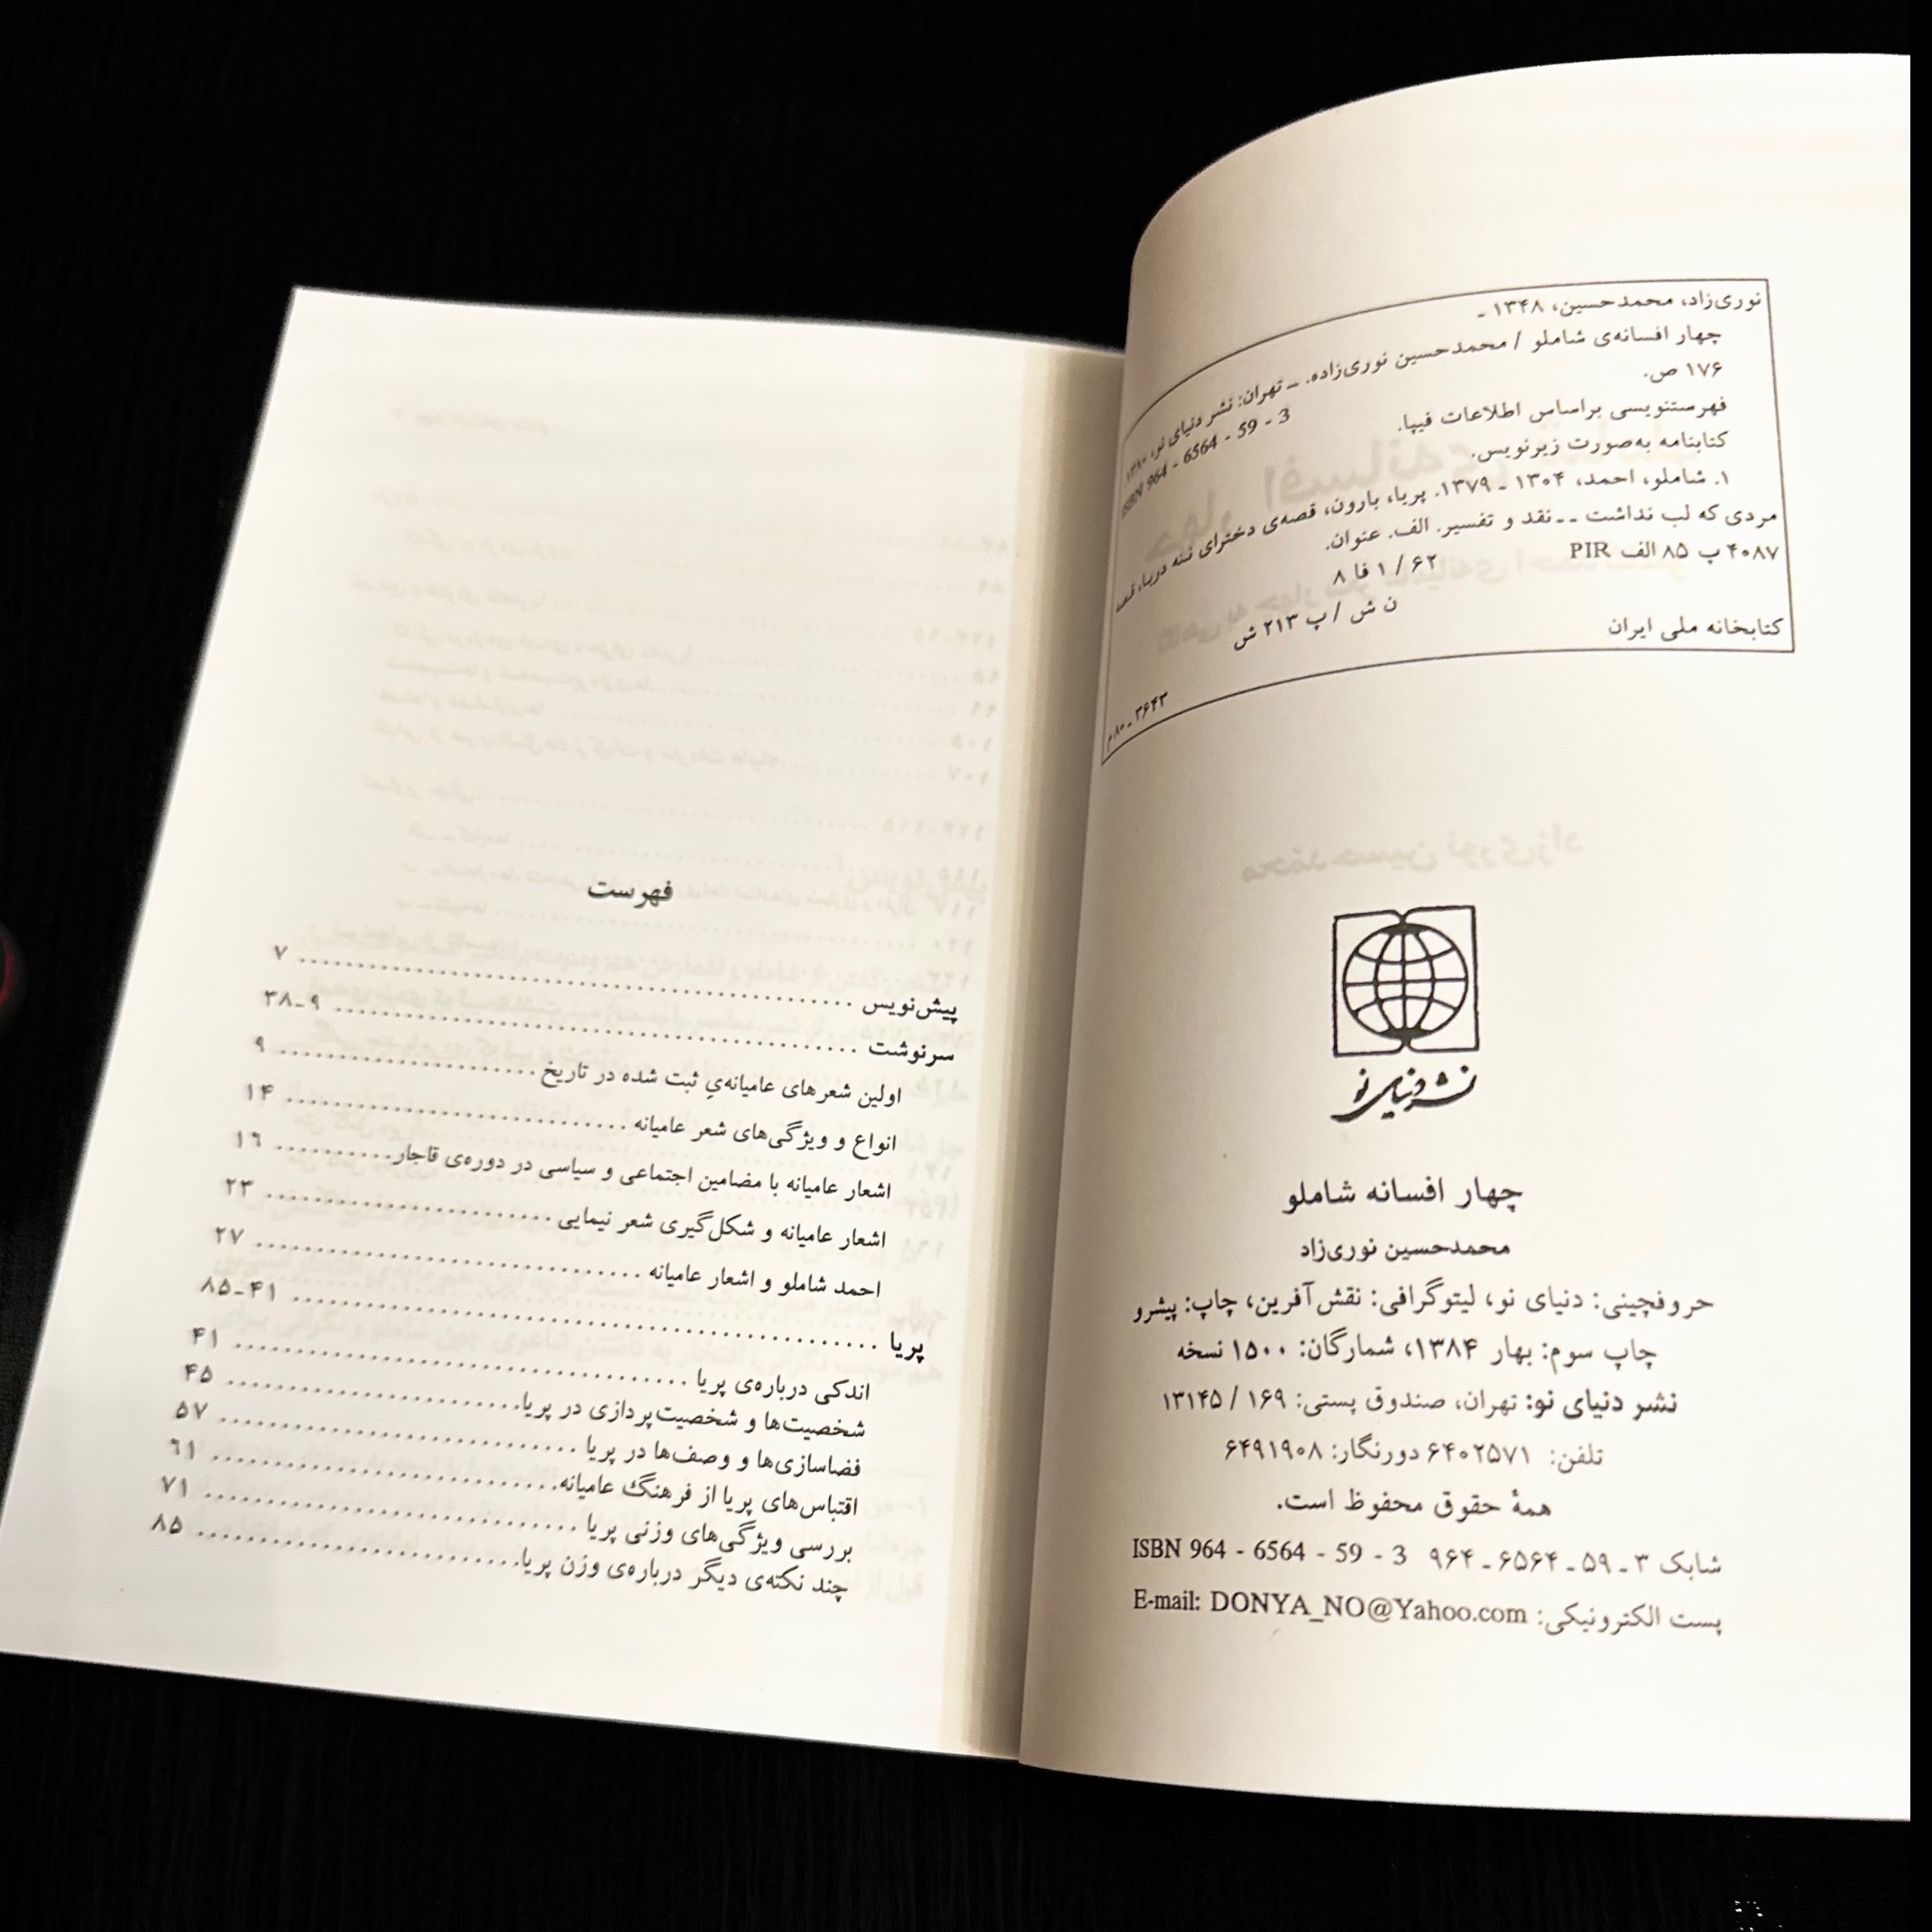 نوری‌زاد، محمدحسین، ۱۳۴۸ ـ
چهار افسانه‌ی شاملو / محمدحسین نوری‌زاده. ــ تهران: نشر دنیای نو، ۱۳۸۰
۱۷۶ ص.
ISBN 964 - 6564 - 59 - 3
فهرستنویسی براساس اطلاعات فیپا.
کتابنامه به‌صورت زیرنویس.
۱. شاملو، احمد، ۱۳۰۴ ـ ۱۳۷۹. پریا، بارون، قصه‌ی دخترای ننه دریا، قصه
مردی که لب نداشت ــ نقد و تفسیر. الف. عنوان.
۴۰۸۷ پ ۸۵ الف PIR
۶۲ / ۱ فا ۸
ن ش / پ ۲۱۳ ش
کتابخانه ملی ایران
۳۶۴۳ ـ ۸۰م
نشر دنیای نو
چهار افسانه شاملو
محمدحسین نوری‌زاد
حروفچینی: دنیای نو، لیتوگرافی: نقش‌آفرین، چاپ: پیشرو
چاپ سوم: بهار ۱۳۸۴، شمارگان: ۱۵۰۰ نسخه
نشر دنیای نو: تهران، صندوق پستی: ۱۶۹ / ۱۳۱۴۵
تلفن: ۶۴۰۲۵۷۱ دورنگار: ۶۴۹۱۹۰۸
همهٔ حقوق محفوظ است.
شابک ۳ ـ ۵۹ ـ ۶۵۶۴ ـ ۹۶۴ ISBN 964 - 6564 - 59 - 3
پست الکترونیکی: E-mail: DONYA_NO@Yahoo.com
فهرست
پیش‌نویس ........ ۷
سرنوشت ........ ۹ـ۳۸
اولین شعرهای عامیانه‌یِ ثبت شده در تاریخ ........ ۹
انواع و ویژگی‌های شعر عامیانه ........ ۱۴
اشعار عامیانه با مضامین اجتماعی و سیاسی در دوره‌ی قاجار ........ ۱۶
اشعار عامیانه و شکل‌گیری شعر نیمایی ........ ۲۳
احمد شاملو و اشعار عامیانه ........ ۲۷
پریا ........ ۴۱ـ۸۵
اندکی درباره‌ی پریا ........ ۴۱
شخصیت‌ها و شخصیت‌پردازی در پریا ........ ۴۵
فضاسازی‌ها و وصف‌ها در پریا ........ ۵۷
اقتباس‌های پریا از فرهنگ عامیانه ........ ۶۱
بررسی ویژگی‌های وزنی پریا ........ ۷۱
چند نکته‌ی دیگر درباره‌ی وزن پریا ........ ۸۵